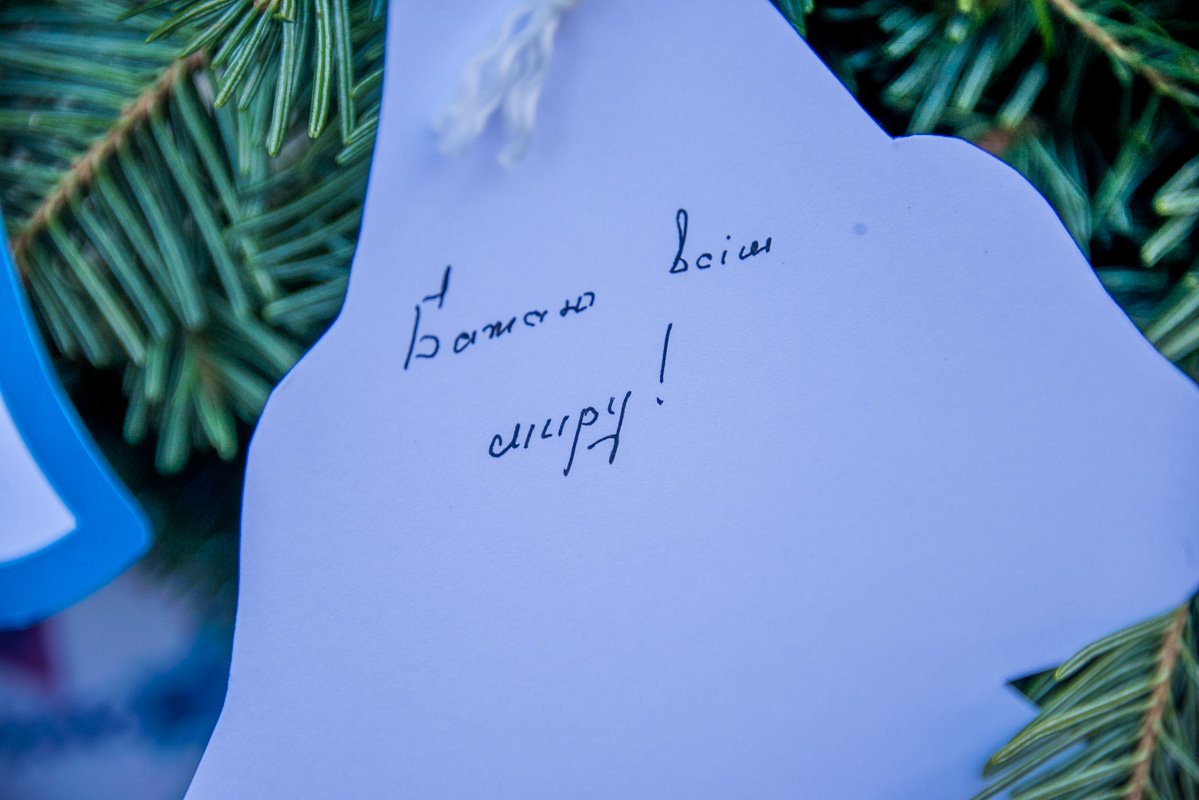 Бажаю всім
миру!